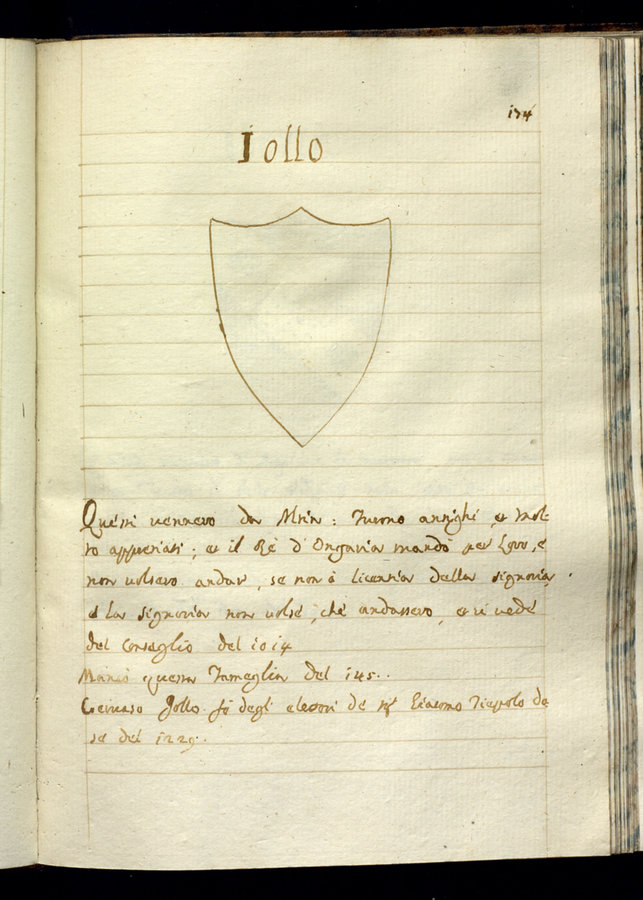 174
Jollo
Questi vennero da Altin: Furono antighi, et mol-
to appreciati; et il Rè d'Ongaria mandò per Loro, e
non volsero andar, se non à licentia della signoria,
e la signoria non volse, che andassero, et si vede
del Conseglio del 1014
Mancò questa Fameglia del 145..
Gervaso Jollo fù degli elettori de Mr Giacomo Tiepolo do
se del 1229.